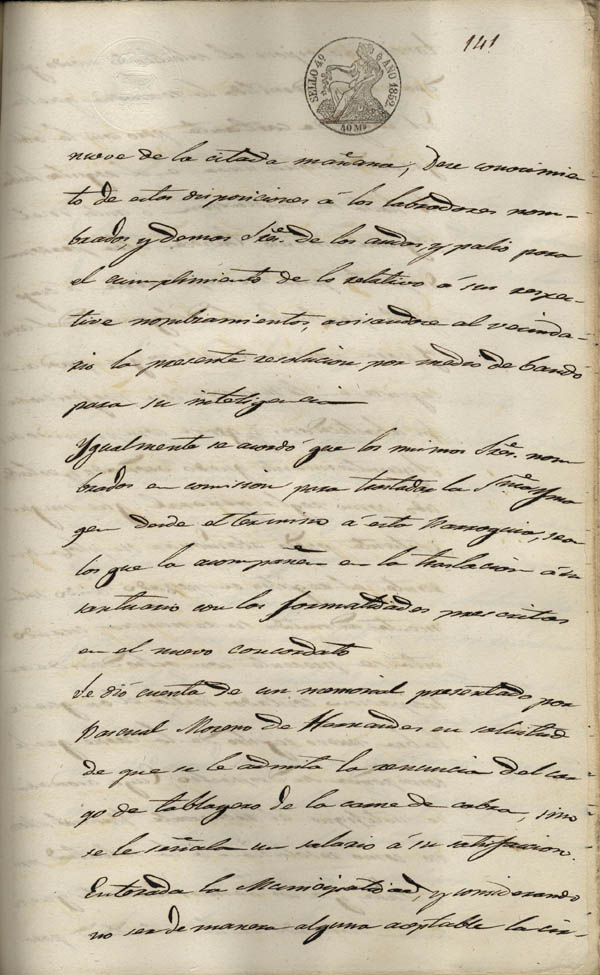 141
SELLO 4º AÑO 1852
40 Ms
nueve de la citada mañana; Dese conocimien-
to de estas disposiciones á los labradores nom-
brados, y demas Sres. de los andas, y palio para
el cumplimiento de lo relativo á sus respec-
tivos nombramientos, avisandose al vecinda-
rio la presente resolucion por medio de bando
para su inteligencia
Ygualmente se acordó que los mismos Sres. nom
brados en comision para trasladar la Sma. Yma
gen desde el termino á esta Parroquia, sean
los que la acompañen en la traslacion á su
santuario con las formalidades prescritas
en el nuevo concordato
Se dió cuenta de un memorial presentado por
Pascual Moreno de Hernandez en solicitud
de que se le admita la renuncia del car
go de tablagero de la carne de cabra, sino
se le señala un salario á su satisfaccion.
Enterada la Municipalidad, y considerando
no ser de manera alguna aceptable la cir-